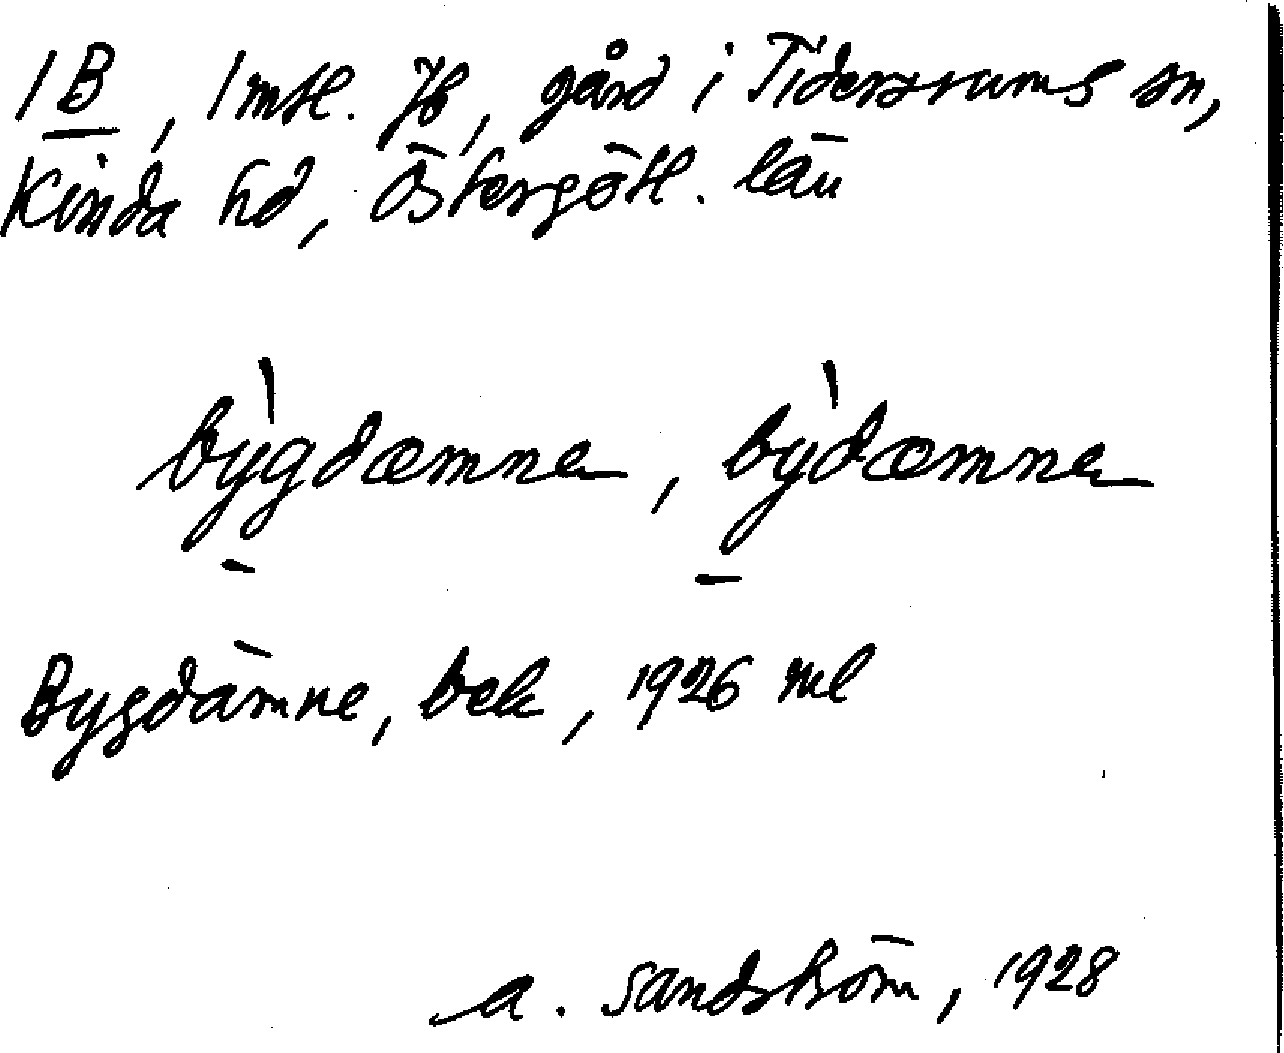 1 B, 1 mtl. Jb, gård i Tidersrums sn,
Kinda hd, Östergötl. län
bỳgdæmne, bỳdæmne
Bygdämne, bek, 1926 ml
A. Sandström, 1928